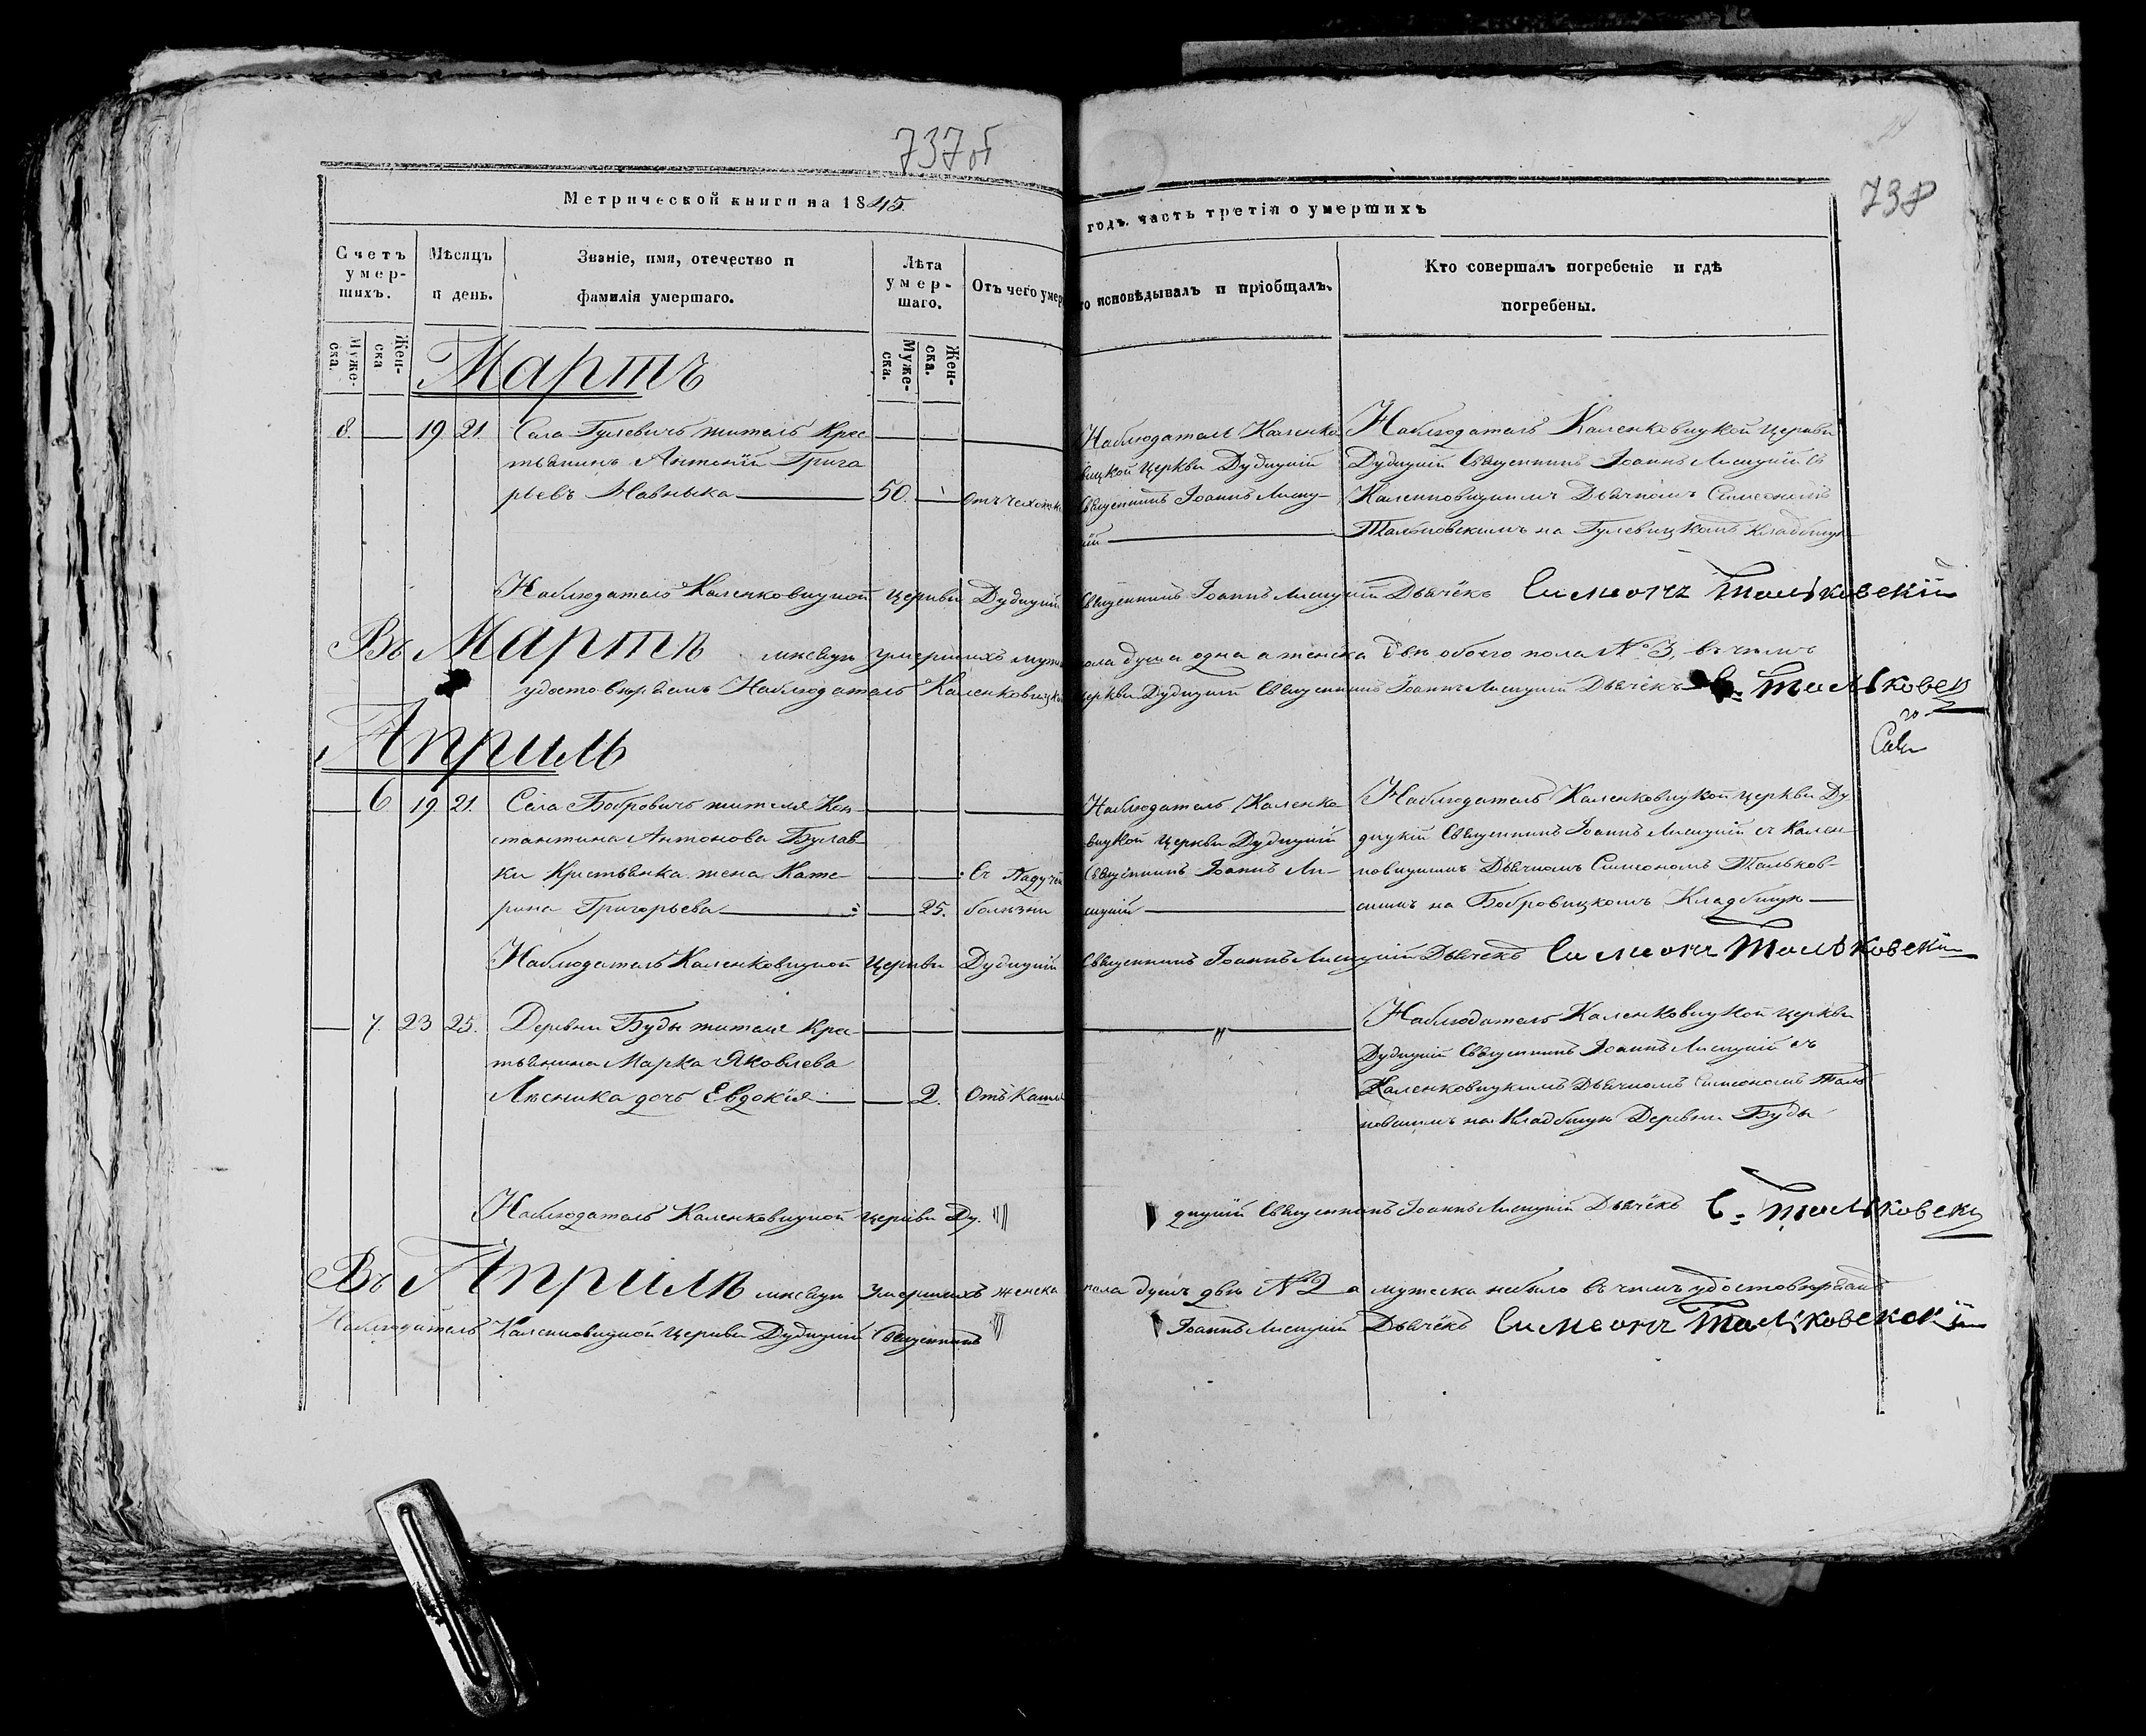 737об
738
Метрической книги на 1845.
годъ. часть третія о умершихъ
Счетъ умер- шихъ.
Мѣсяцъ и день.
Званіе, имя, отечество и фамилія умершаго.
Лѣта умер- шаго.
Отъ чего умер
то исповѣдывалъ и пріобщалъ.
Кто совершалъ погребеніе и гдѣ погребены.
Муже- ска.
Жен- ска
Муже- ска.
Жен- ска.
Мартъ
8. 19 21. Села Гулевичъ житель Крес
тьянинъ Антоній Григо
рьевъ 50. Отъ чахотки
Наблюдатель Каленко
вицкой Церкви Дудицкій
Священникъ Іоаннъ Лиси-
цкій
Наблюдатель Каленковицкой Церкви
Дудицкій Священникъ Іоаннъ Лисицкій съ
Каленковицкимъ Дьячкомъ Симеономъ
Тальковскимъ на Гулевицкомъ Кладбищѣ
Наблюдатель Каленковицкой Церкви Дудицкій Священникъ Іоаннъ Лисицкій Дьячекъ Симеонъ Тальковскій
Въ Мартѣ мѣсяцѣ умершихъ муж пола душа одна а женска двѣ обоего пола № 3, въ чемъ
удостовѣряемъ Наблюдатель Каленковицкой Церкви Дудицкій Священникъ Іоаннъ Лисицкій Дьячекъ С. Тальковск
Апрель
6. 19 21. Села Бобровичъ жителя Кон-
стантина Антонова Булав-
ки Крестьянка жена Кате-
рина Григорьева 25. Съ Падучей
болѣзни
Наблюдатель Каленко
вицкой Церкви Дудицкій
Священникъ Іоаннъ Ли-
сицкій
Наблюдатель Каленковицкой Церкви Ду
дицкій Священникъ Іоаннъ Лисицкій съ Кален
ковицкимъ Дьячкомъ Симеономъ Тальков-
скимъ на Бобровицкомъ Кладбищѣ
Наблюдатель Каленковицкой Церкви Дудицкій Священникъ Іоаннъ Лисицкій Дьячекъ Симеонъ Тальковскій
7. 23 25. Деревни Буды жителя Крес
тьянина Марка Яковлева
Лѣсника дочь Евдокія 2. Отъ Кашля
Наблюдатель Каленковицкой Церкви
Дудицкій Священникъ Іоаннъ Лисицкій съ
Каленковицкимъ Дьячкомъ Симеономъ Таль
ковскимъ на Кладбищѣ Деревни Буды
Наблюдатель Каленковицкой Церкви Ду.
дицкій Священникъ Іоаннъ Лисицкій Дьячекъ С. Тальковск
Въ Апрелѣ мѣсяцѣ Умершихъ женска пола душъ двѣ № 2 а мужеска небыло въ чемъ удостовѣряемъ
Наблюдатель Каленковицкой Церкви Дудицкій Священникъ
Іоаннъ Лисицкій Дьячекъ Симеонъ Тальковской